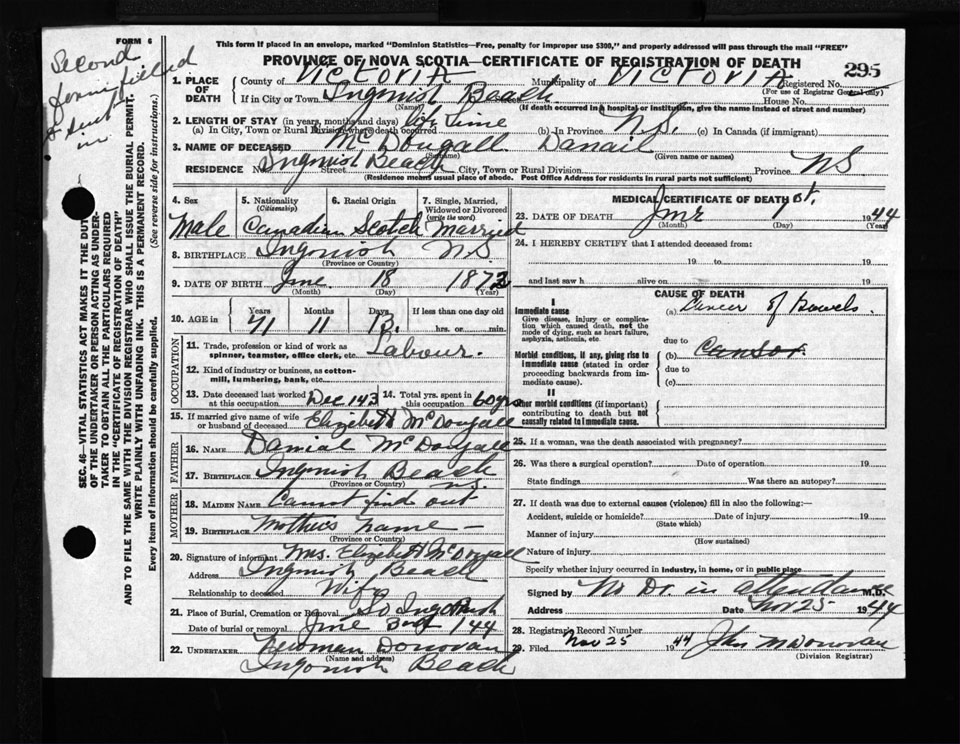 FORM 6
Second
This form if placed in an envelope, marked "Dominion Statistics—Free, penalty for improper use $300," and properly addressed will pass through the mail "FREE"
PROVINCE OF NOVA SCOTIA—CERTIFICATE OF REGISTRATION OF DEATH
295
1. PLACE OF DEATH County of Victoria Municipality of Victoria Registered No.
(For use of Registrar General only)
If in City or Town Ingonish Beach House No.
(Name) (If death occurred in a hospital or institution, give the name instead of street and number)
2. LENGTH OF STAY (in years, months and days) life time
(a) In City, Town or Rural Division where death occurred (b) In Province N.S. (c) In Canada (if immigrant)
3. NAME OF DECEASED McDougall Danail
(Surname) (Given name or names)
RESIDENCE No. Ingonish Beach Street City, Town or Rural Division Province NS
(Residence means usual place of abode. Post Office Address for residents in rural parts not sufficient)
4. Sex Male
5. Nationality (Citizenship) Canadian
6. Racial Origin Scotch
7. Single, Married, Widowed or Divorced (write the word) Married
8. BIRTHPLACE Ingonish N.S.
(Province or Country)
9. DATE OF BIRTH June 18 1872
(Month) (Day) (Year)
10. AGE in Years 71 Months 11 Days 13 If less than one day old hrs. or min.
OCCUPATION
11. Trade, profession or kind of work as spinner, teamster, office clerk, etc. Labour.
12. Kind of industry or business, as cotton-mill, lumbering, bank, etc.
13. Date deceased last worked at this occupation Dec 143 14. Total yrs. spent in this occupation 60 yrs
15. If married give name of wife or husband of deceased Elizebeth McDougall
FATHER
16. NAME Danial McDougall
17. BIRTHPLACE Ingonish Beach N.S.
(Province or Country)
MOTHER
18. MAIDEN NAME Cannot find out
19. BIRTHPLACE mothers name —
(Province or Country)
20. Signature of informant Mrs. Elizebeth McDougall
Address Ingonish Beach
Relationship to deceased Wife
21. Place of Burial, Cremation or Removal So Ingonish
Date of burial or removal June 3rd 144
22. UNDERTAKER Freeman Donovan
(Name and address)
Ingonish Beach
MEDICAL CERTIFICATE OF DEATH
23. DATE OF DEATH June 1st. 1944
(Month) (Day) (Year)
24. I HEREBY CERTIFY that I attended deceased from:
19 to 19
and last saw h alive on 19
CAUSE OF DEATH
I
Immediate cause (a) Cancer of Bowels.
Give disease, injury or complication which caused death, not the mode of dying, such as heart failure, asphyxia, asthenia, etc.
due to
Morbid conditions, if any, giving rise to immediate cause (stated in order proceeding backwards from immediate cause). (b) Cansor.
due to
(c)
II
Other morbid conditions (if important) contributing to death but not causally related to immediate cause.
25. If a woman, was the death associated with pregnancy?
26. Was there a surgical operation? Date of operation 19
State findings Was there an autopsy?
27. If death was due to external causes (violence) fill in also the following:—
Accident, suicide or homicide? Date of injury 19
(State which)
Manner of injury
(How sustained)
Nature of injury
Specify whether injury occurred in industry, in home, or in public place
Signed by No Dr. in attendance M.D.
Address Date Nov 25 1944
28. Registrar's Record Number
29. Filed Nov 25 1944 John M Donovan
(Division Registrar)
SEC. 46—VITAL STATISTICS ACT MAKES IT THE DUTY
OF THE UNDERTAKER OR PERSON ACTING AS UNDER-
TAKER TO OBTAIN ALL THE PARTICULARS REQUIRED
IN THE "CERTIFICATE OF REGISTRATION OF DEATH"
AND TO FILE THE SAME WITH THE DIVISION REGISTRAR WHO SHALL ISSUE THE BURIAL PERMIT.
WRITE PLAINLY WITH UNFADING INK. THIS IS A PERMANENT RECORD.
Every item of information should be carefully supplied. (See reverse side for instructions).